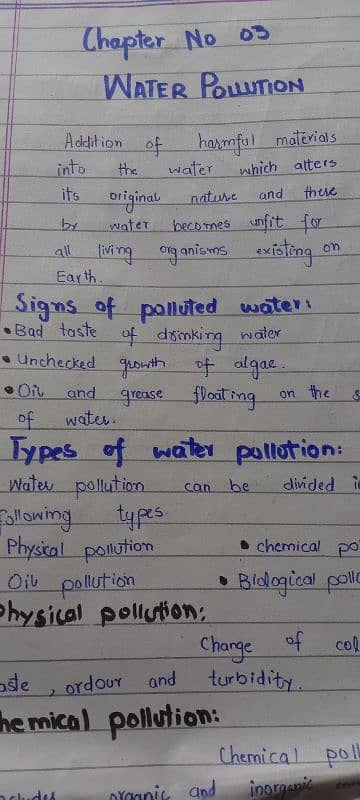 Chapter No 03
WATER POLLUTION
Addition of harmful materials
into the water which alters
its original nature and there
by water becomes unfit for
all living organisms existing on
Earth.
Signs of polluted water:
• Bad taste of drinking water
• Unchecked growth of algae.
• Oil and grease floating on the s
of water.
Types of water pollution:
Water pollution can be divided i
following types.
Physical pollution • chemical po
Oil pollution • Biological pollu
Physical pollution:
Change of col
aste, ordour and turbidity.
hemical pollution:
Chemical poll
organic and inorganic